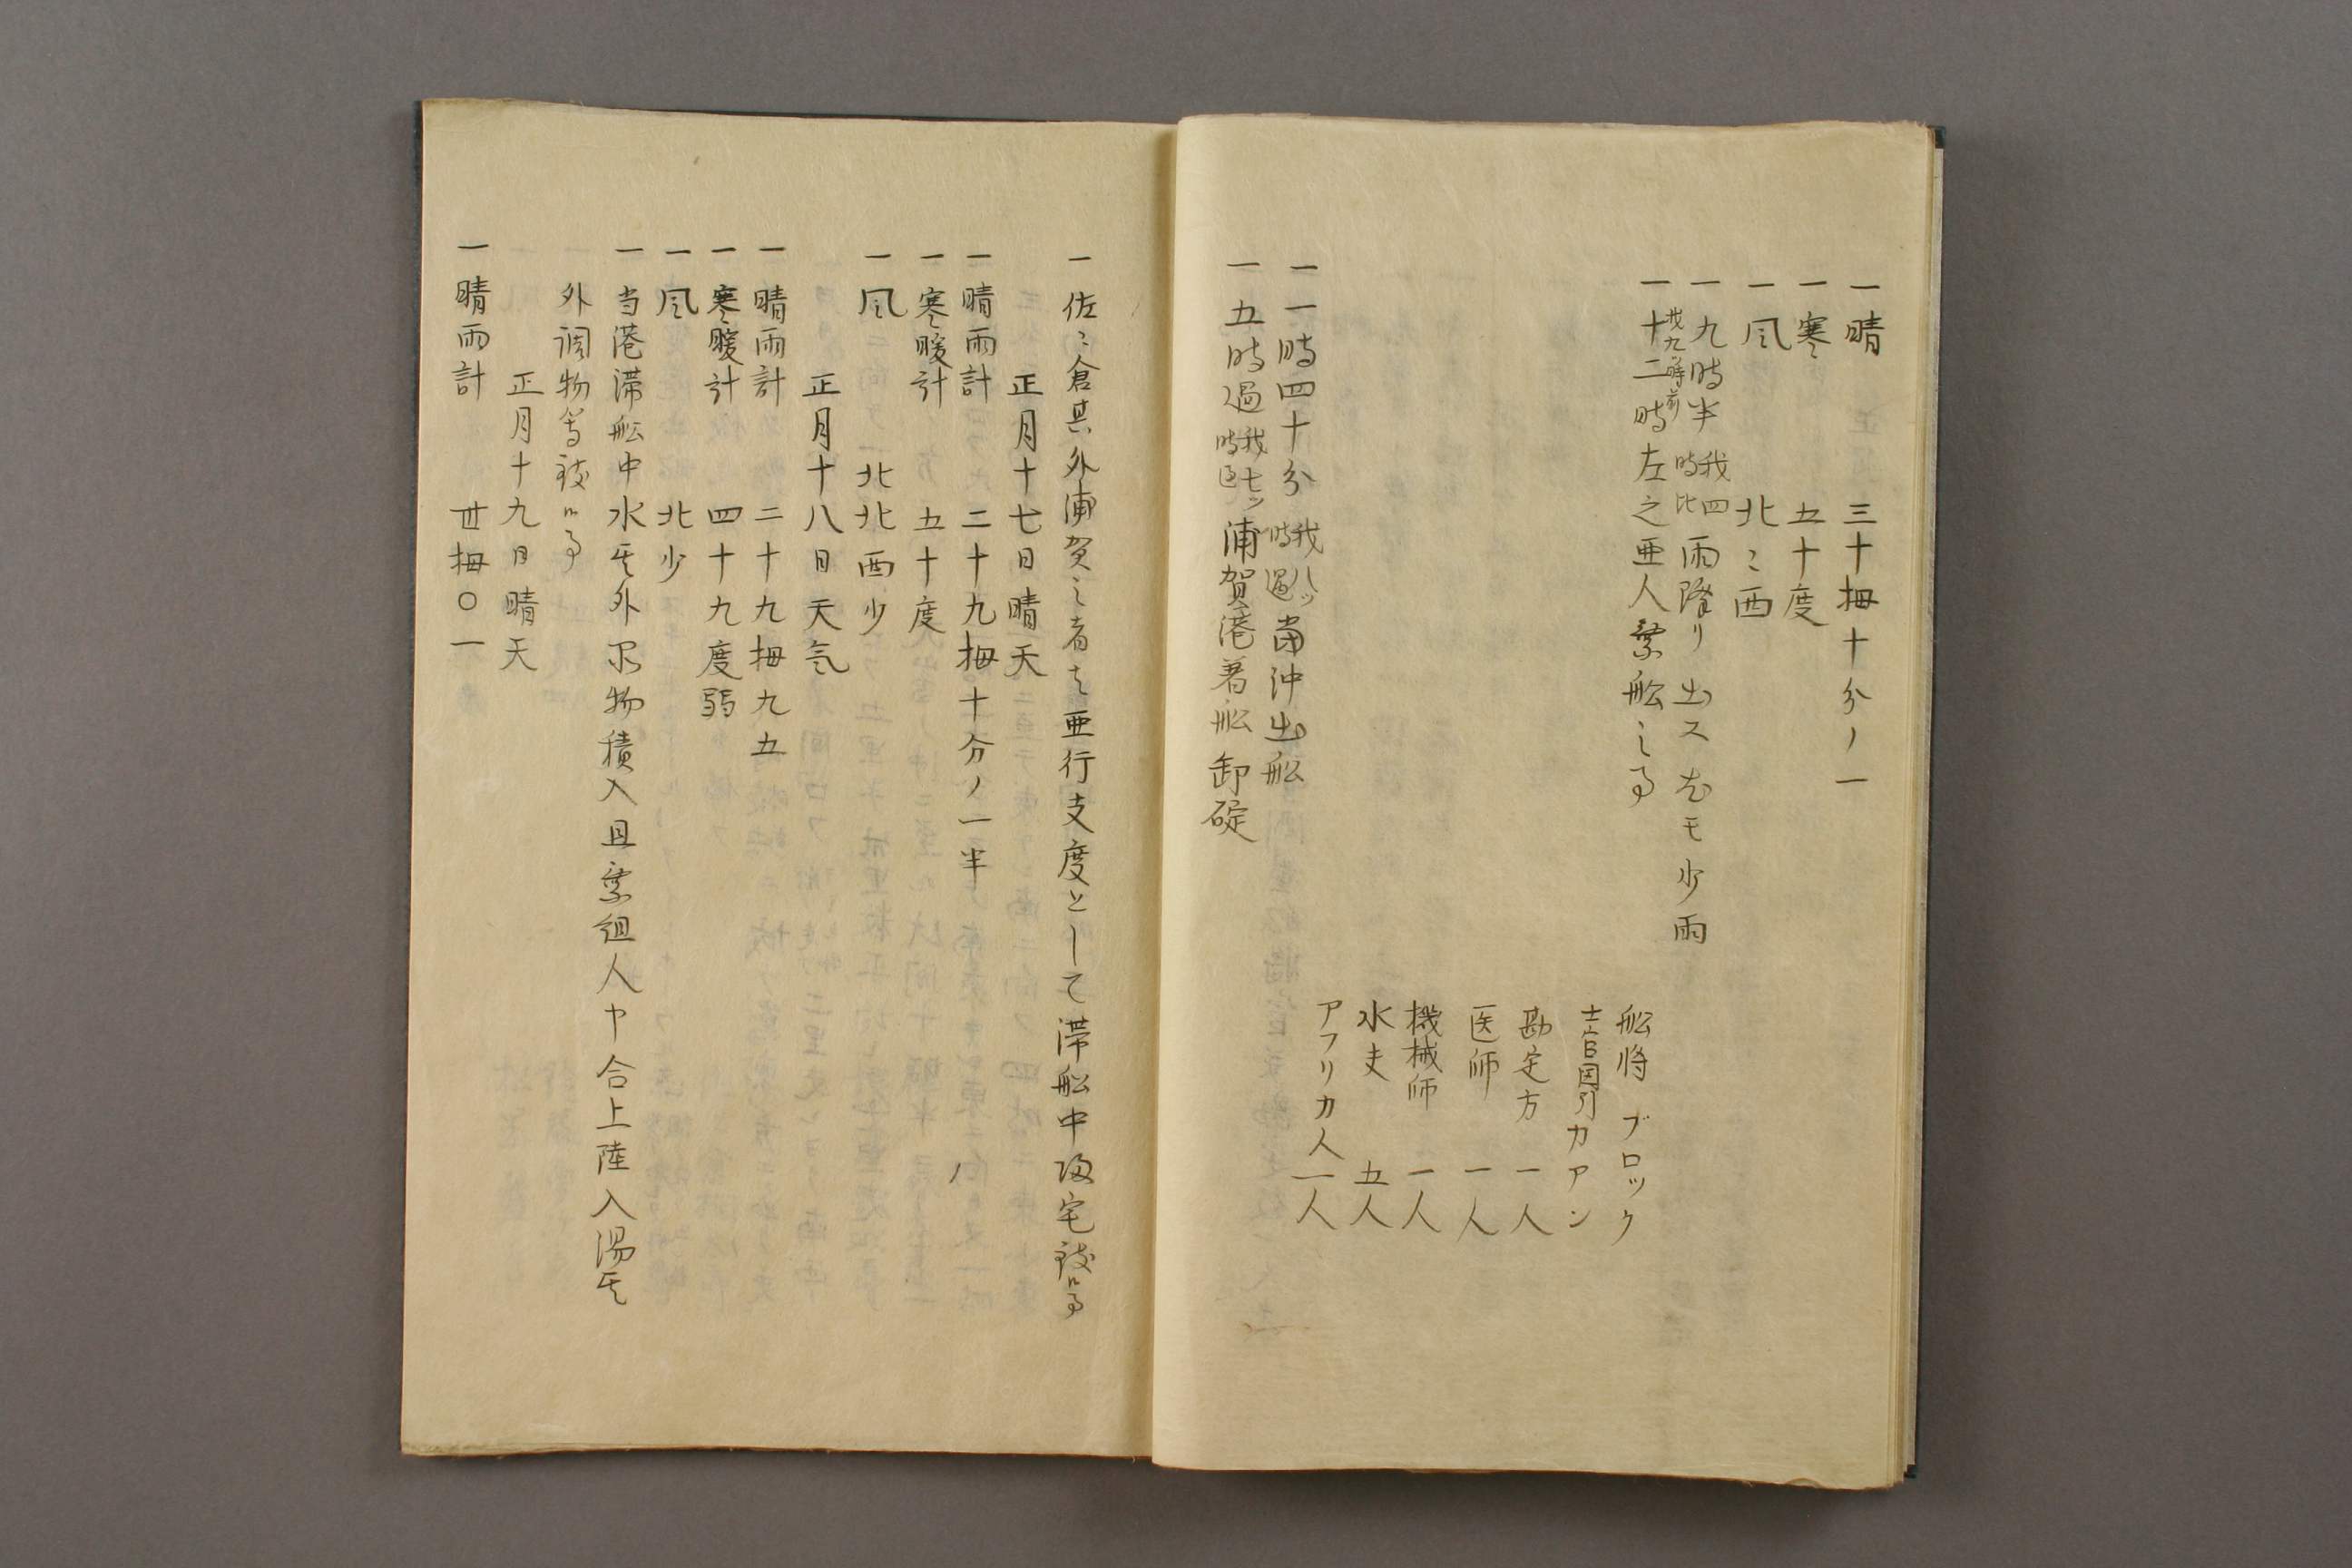 一晴　三十拇十分ノ一
一寒　五十度
一風　北々西
一九時半 我四時比 雨降リ出ス尤モ少雨
一十二時 我九時前 左之亜人乗船之事
船将　ブロック
士官図引カアン
勘定方　一人
医師　一人
機械師　一人
水夫　五人
アフリカ人　一人
一一時四十分 我八ツ時過 当沖出船
一五時過 我七ツ時過 浦賀港着船卸碇
一佐々倉其外浦賀之者ハ亜行支度として滞船中帰宅致ス事
正月十七日晴天
一晴雨計　二十九拇十分ノ一半
一寒暖計　五十度
一風　北北西少
正月十八日天気
一晴雨計　二十九拇九五
一寒暖計　四十九度弱
一風　北少
一当港滞船中水其外品物積入且乗組人中合上陸入湯其
外調物等致ス事
正月十九日晴天
一晴雨計　丗拇〇一